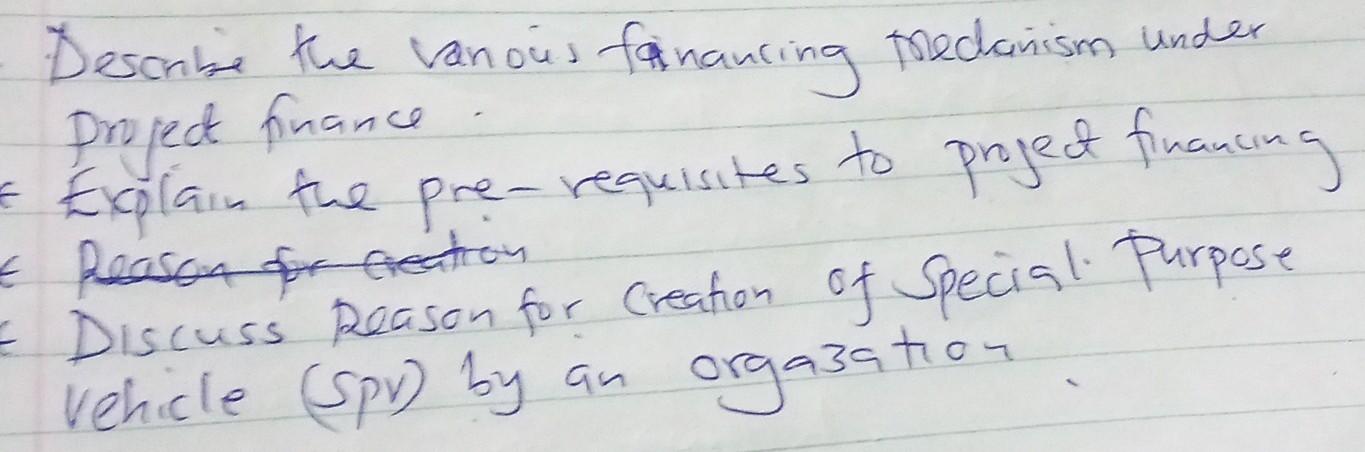 Describe the various fainancing mechanism under
project finance.
Explain the pre-requisites to project financing
Reason for Creation
Discuss Reason for Creation of Special Purpose
Vehicle (SPV) by an orgazation